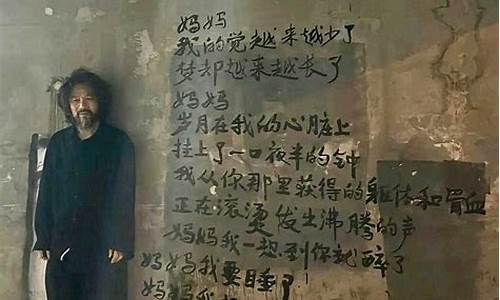 妈妈
我的觉越来越少了
梦却越来越长了
妈妈
岁月在我的心脏上
挂上了一口夜半的钟
我从你那里获得的躯体和骨血
正在滚烫发出沸腾的声
妈妈我一想到你就醉了
妈妈我要睡了
妈妈我